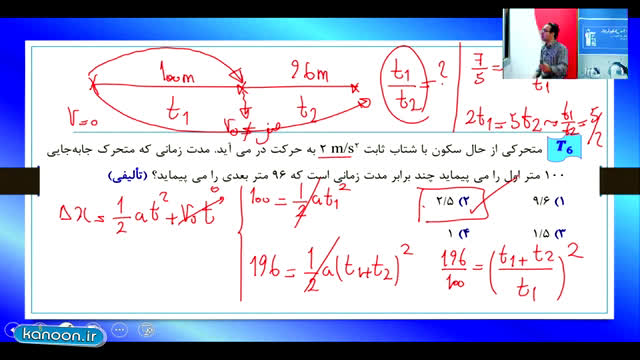 100m 96m
t₁ t₂
V=0
V₀ ≠ صفر
t₁/t₂ = ?
7/5 = t₁
2t₁ = 5t₂ ~ t₁/t₂ = 5/2
T6 متحرکی از حال سکون با شتاب ثابت ۲ m/s² به حرکت در می آید. مدت زمانی که متحرک جابه‌جایی
۱۰۰ متر اول را می پیماید چند برابر مدت زمانی است که ۹۶ متر بعدی را می پیماید؟ (تألیفی)
۱) ۹/۶ ۲) ۲/۵
۳) ۱/۵ ۴) ۱
Δx = 1/2 at² + V₀t 0
100 = 1/2 at₁²
196 = 1/2 a(t₁+t₂)²
196/100 = (t₁+t₂/t₁)²
kanoon.ir